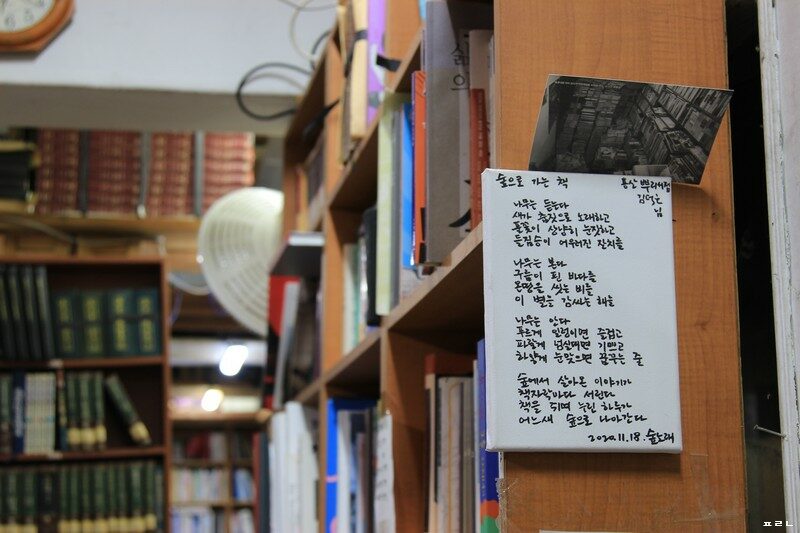 숲으로 가는 책
용산 뿌리서점
님
나무는 듣는다
새가 춤짓으로 노래하고
풀꽃이 상냥히 눈짓하고
들짐승이 어우러진 잔치를
나무는 본다
구름이 된 바다를
온땅을 씻는 비를
이 별을 감싸는 해를
나무는 안다
푸르게 일렁이면 즐겁고
파랗게 넘실대면 기쁘고
하얗게 눈맞으면 꿈꾸는 줄
숲에서 살아온 이야기가
책자락마다 서린다
책을 쥐며 누린 하루가
어느새 숲으로 나아간다
2020.11.18. 숲노래
ㅍㄹㄴ